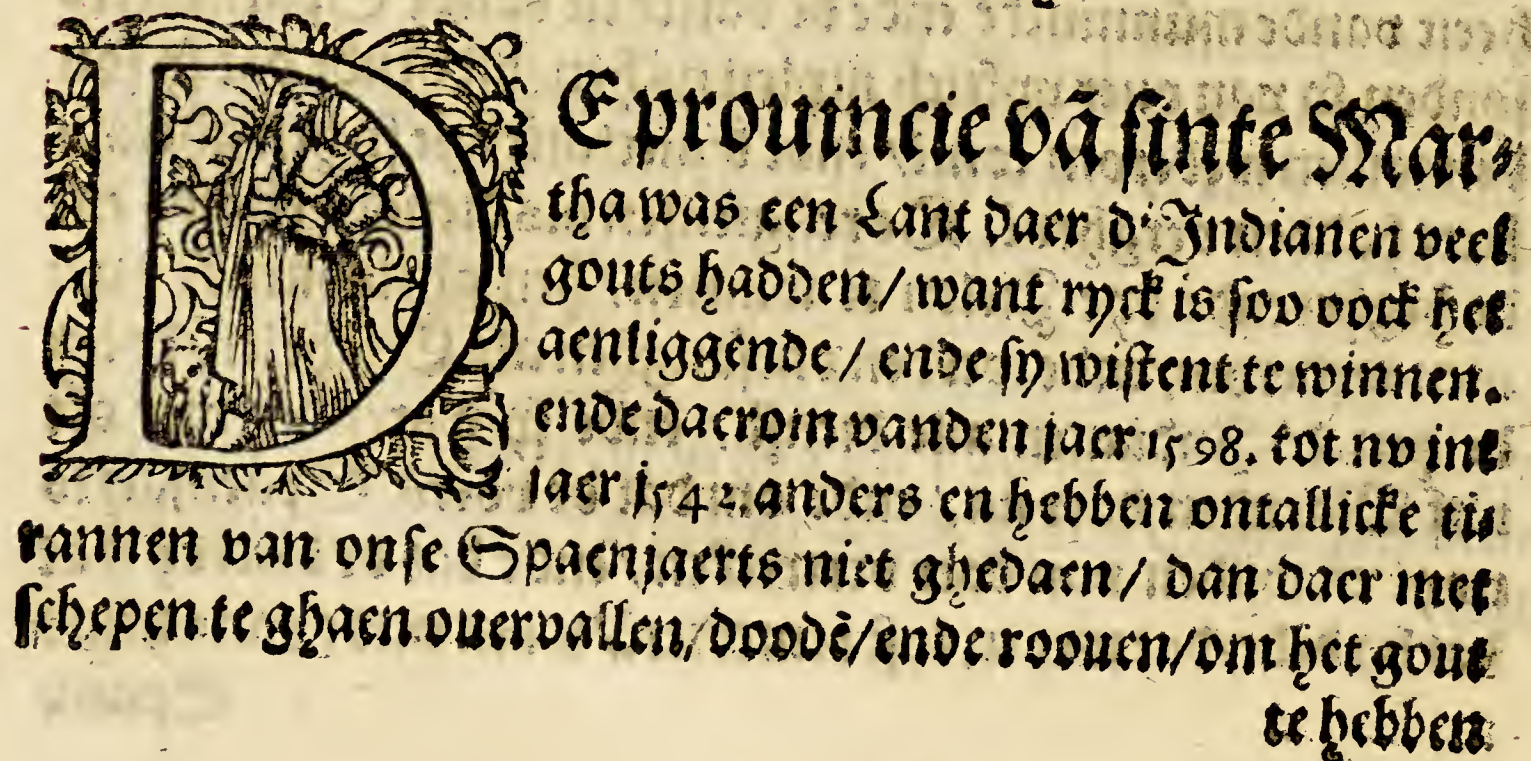 DE prouincie vā sinte Mar-
tha was een Lant daer d'Indianen veel
gouts hadden/ want ryck is soo oock het
aenliggende/ ende sy wistent te winnen.
ende daerom vanden jaer 1598. tot nv int
jaer 1542. anders en hebben ontallicke ti-
rannen van onse Spaenjaerts niet ghedaen/ dan daer met
schepen te ghaen ouervallen/ doodē/ ende roouen/ om het gout
te hebben